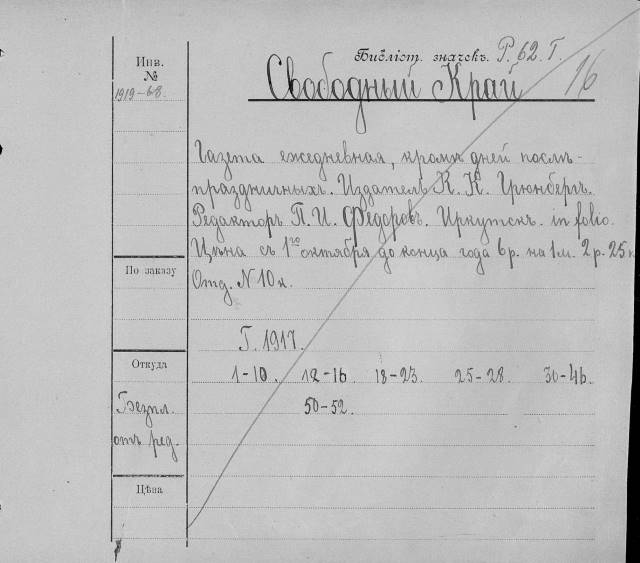 Библіот. значокъ Р. 62. Г.
16
Свободный Край
Инв.
№
1919-68
Газета ежедневная, кромѣ дней послѣ-
праздничныхъ. Издатель К. К. Грюнбергъ.
Редакторъ П. И. Федоровъ. Иркутскъ. in folio.
Цѣна съ 1го октября до конца года 6 р. на 1 м. 2 р. 25 к
Отд. N 10 к.
По заказу
Г. 1917.
Откуда
1-10. 12-16 18-23. 25-28. 30-46.
50-52.
Безпл.
отъ ред.
Цѣна